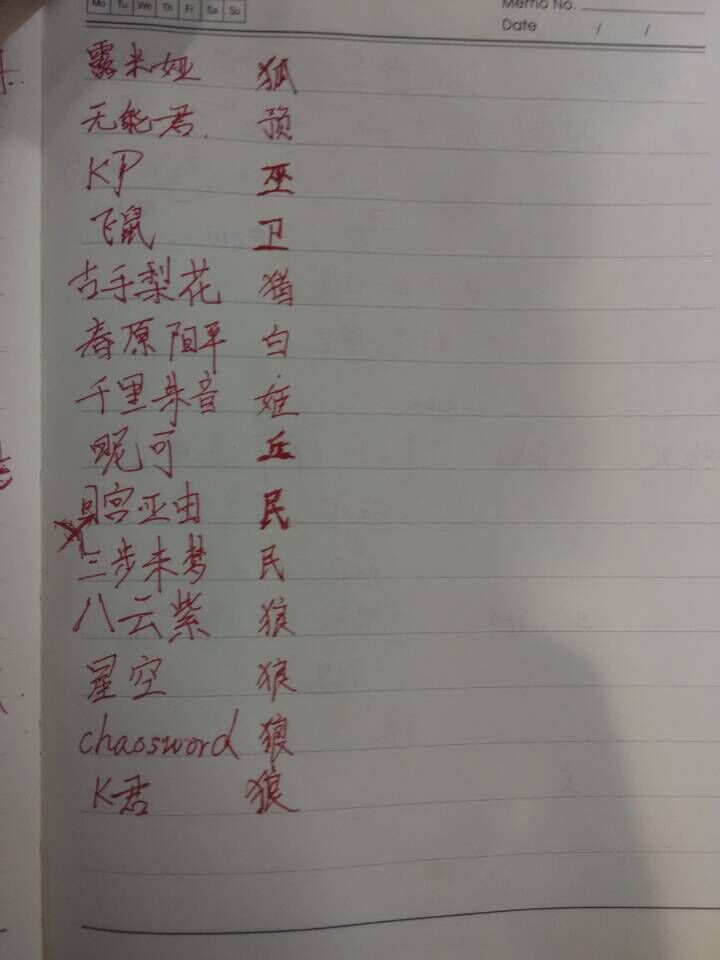 Mo Tu We Th Fr Sa Su
Memo No.
Date / /
露米娅 狐
无能君. 预
KP 巫
飞鼠 卫
古手梨花 猎
春原阳平 白
千里朱音 姬
昵可 丘
月宫亚由 民
三步未梦 民
八云紫 狼
星空 狼
chaossword 狼
K君 狼